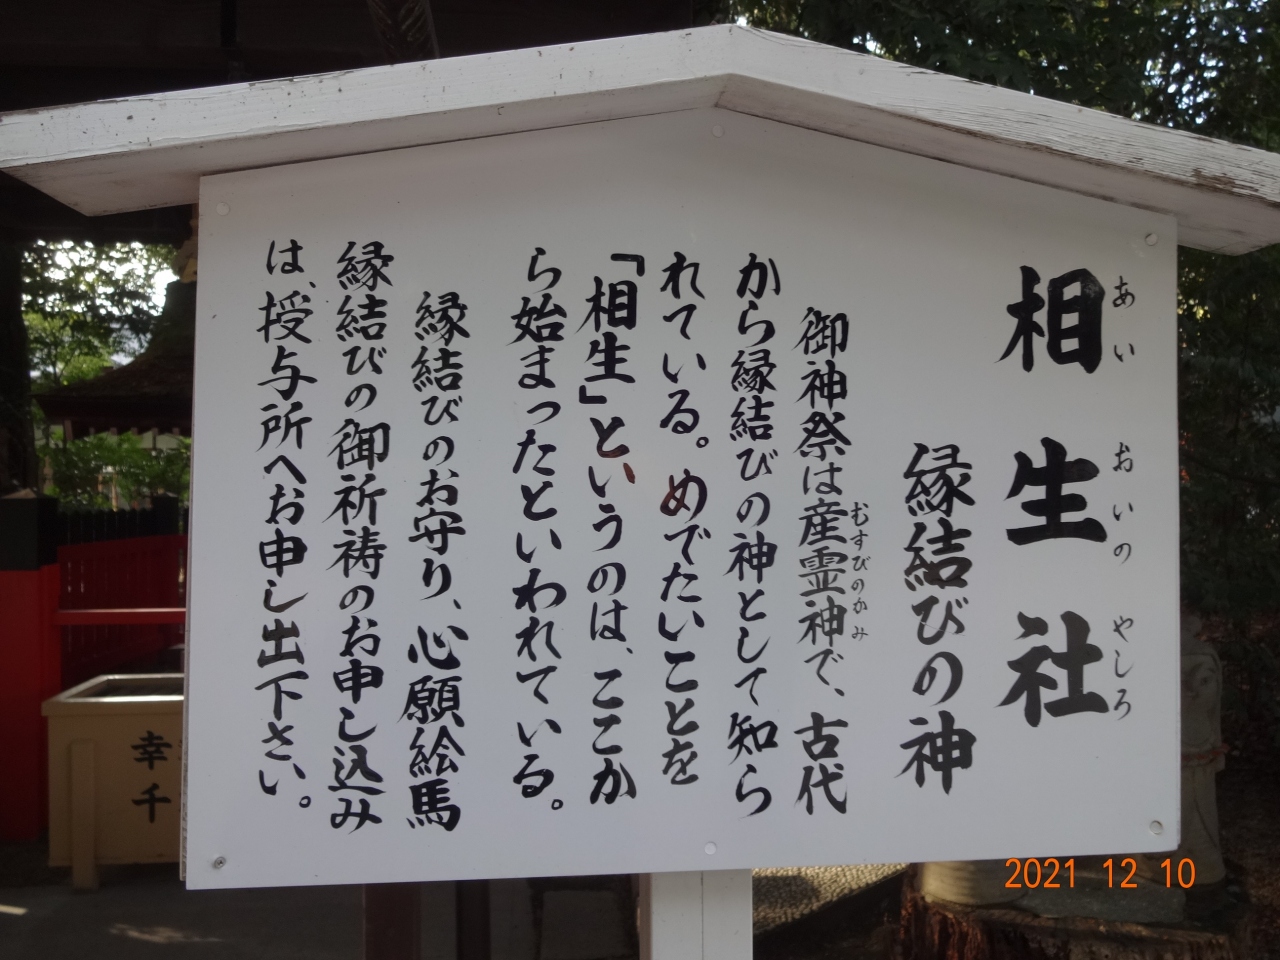 相生社
あい おいの やしろ
縁結びの神
御神祭は産霊神で、古代
むすびのかみ
から縁結びの神として知ら
れている。めでたいことを
「相生」というのは、ここか
ら始まったといわれている。
縁結びのお守り、心願絵馬
縁結びの御祈祷のお申し込み
は、授与所へお申し出下さい。
幸
千
2021 12 10